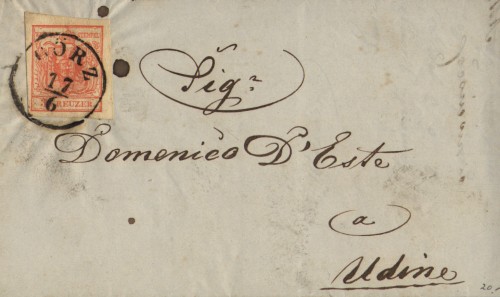 GÖRZ
17
6
KREUZER
Sigr
Domenico D'Este
a
Udine